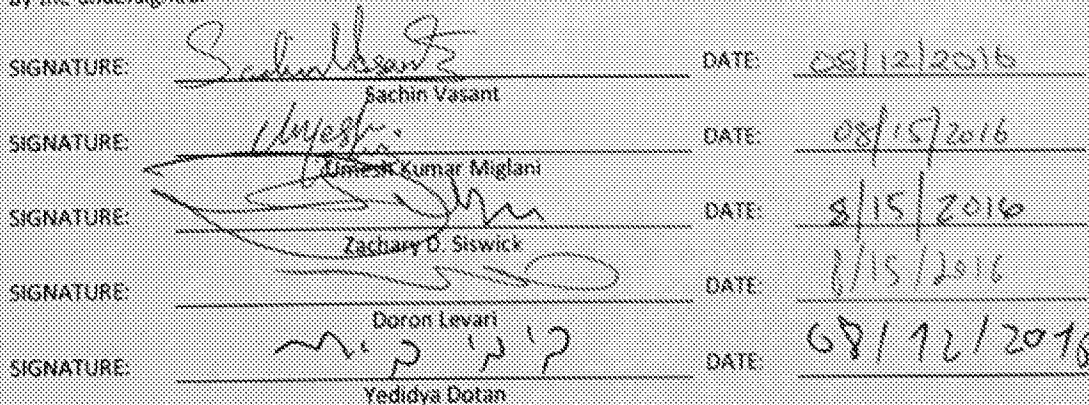 by the undersigned.
SIGNATURE: Sachin Vasant DATE: 08/12/2016
Sachin Vasant
SIGNATURE: Umesh. DATE: 08/15/2016
Umesh Kumar Miglani
SIGNATURE: DATE: 8/15/2016
Zachary D. Siswick
SIGNATURE: DATE: 8/15/2016
Doron Levari
SIGNATURE: DATE: 08/12/2016
Yedidya Dotan